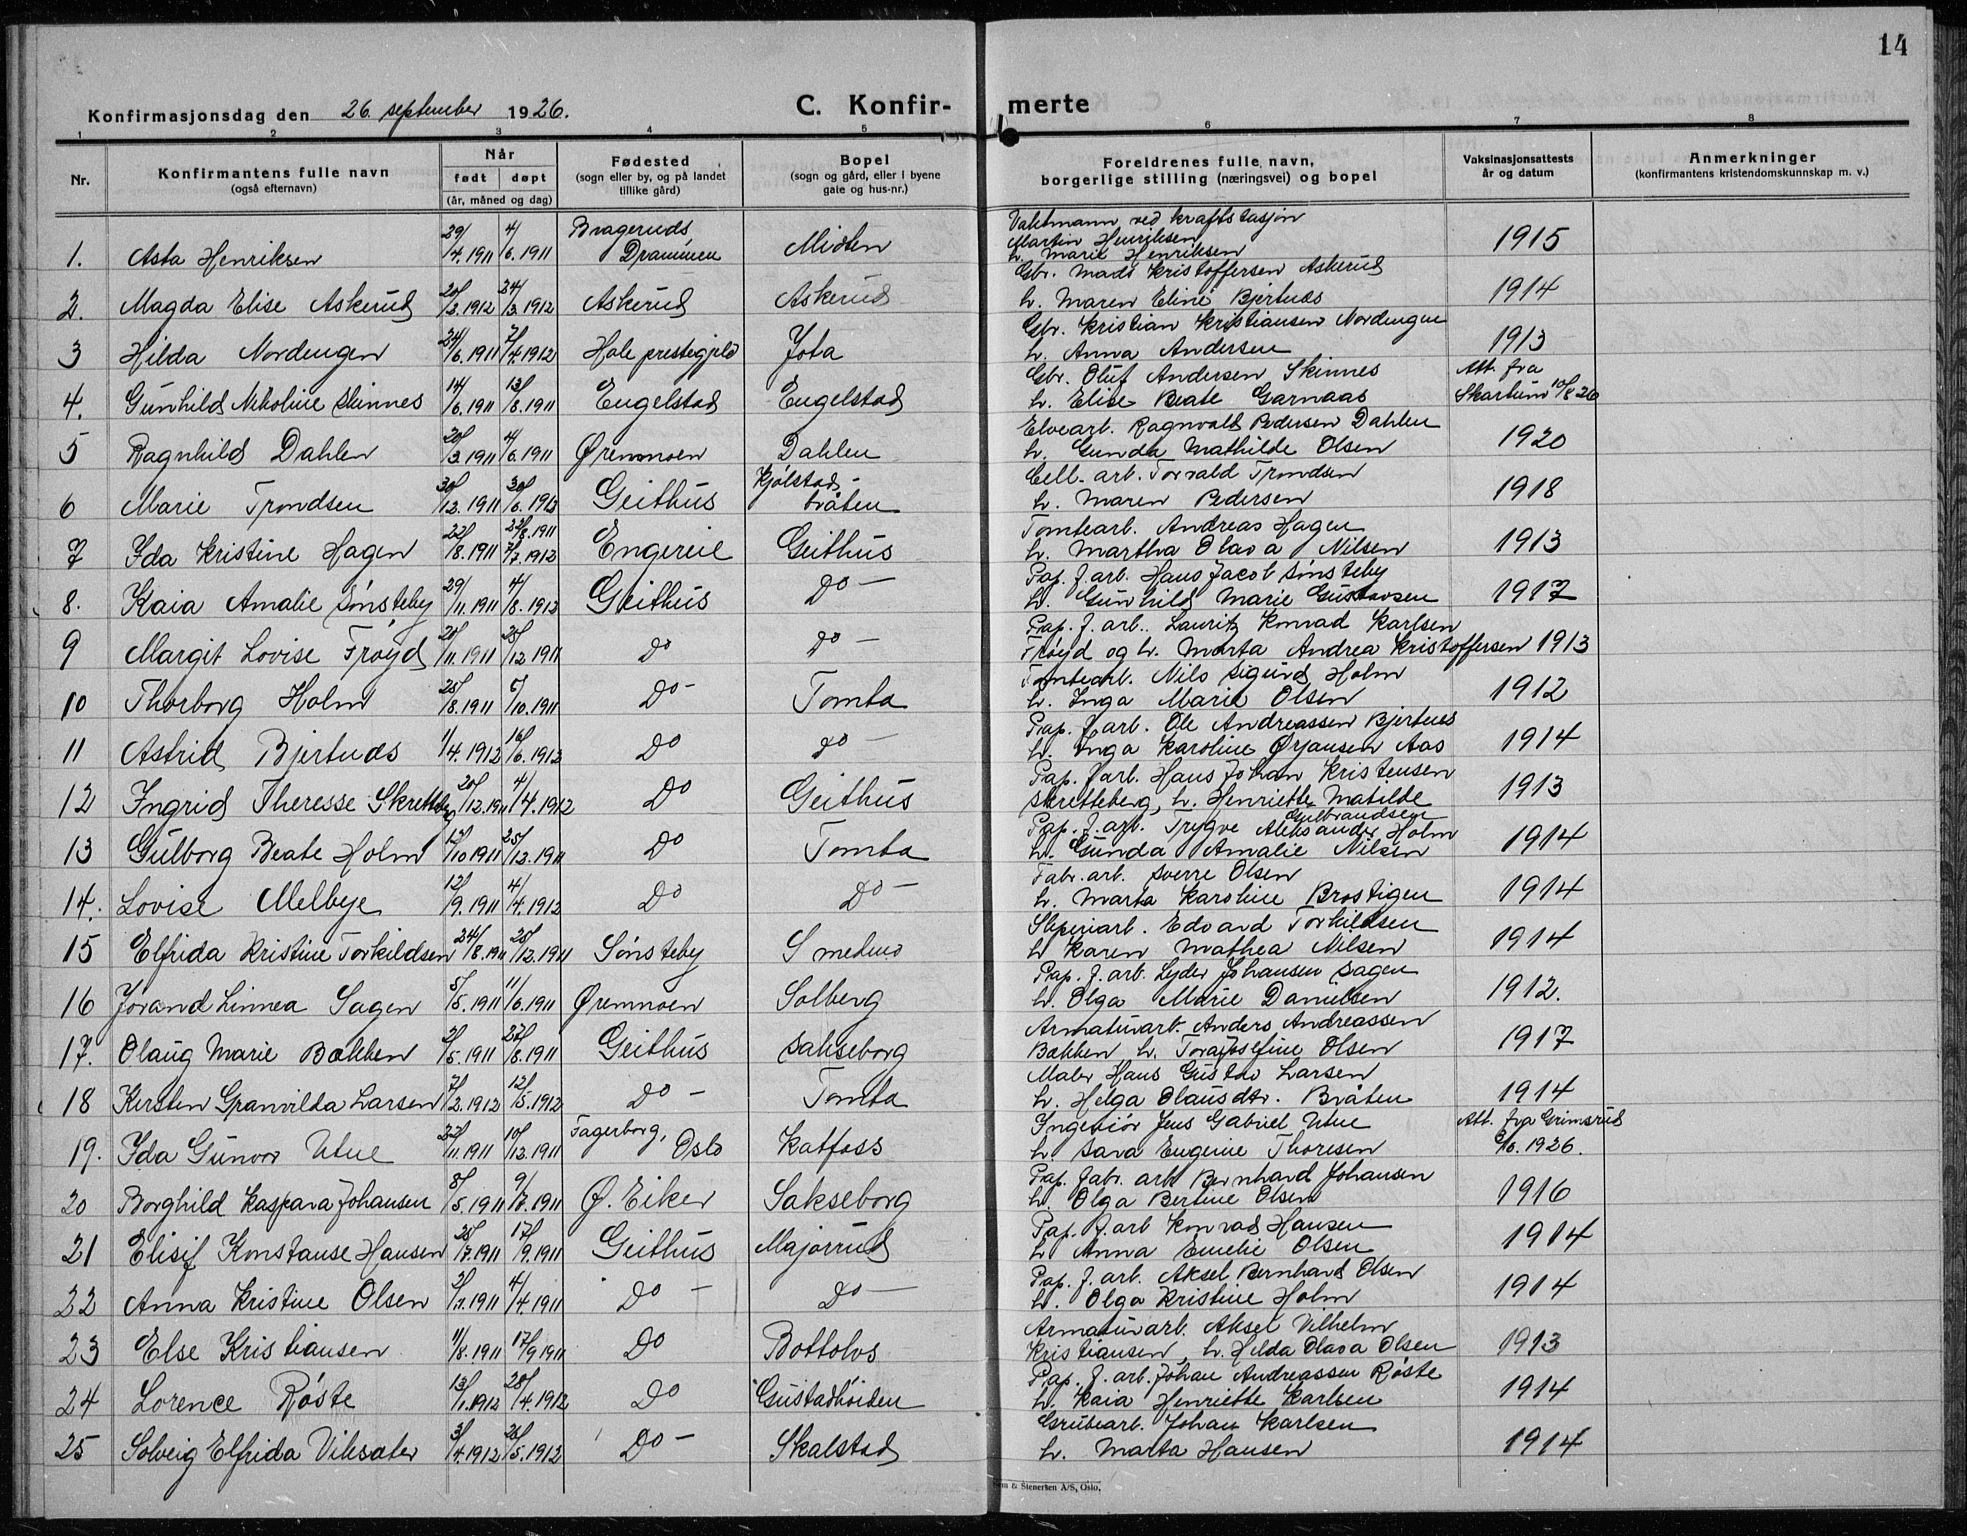 14
Konfirmasjonsdag den 26. september 1926.
C. Konfir- merte
1 2 3 4 5 6 7 8
Nr. Konfirmantens fulle navn (også efternavn) Når født døpt (år, måned og dag) Fødested (sogn eller by, og på landet tillike gård) Bopel (sogn og gård, eller i byene gate og hus-nr.) Foreldrenes fulle navn, borgerlige stilling (næringsvei) og bopel Vaksinasjonsattests år og datum Anmerkninger (konfirmantens kristendomskunnskap m. v.)
Vaktmann ved kraftstasjon
Martin Henriksen
1. Asta Henriksen 29/4.1911 4/6.1911 Drammen h. Marie Henriksen 1915
Gbr. Mads Kristoffersen Askerud
2. Magda Elise Askerud /3.1912 24/3.1912 Askerud Askerud h. Maren Eline Bjertnæs 1914
Gbr. Kristian Kristiansen Nordengen
3 Hilda Nordengen 24/6.1911 7/4.1912 Hole prestegjeld Jota h. Anna Andersen 1913
Gbr. Oluf Andersen Skinnes Att. fra
4. Gunhild Nikoline Skinnes 14/6.1911 13/8.1911 Engelstad Engelstad h. Elise Beate Garnaas 10/8 26
Elvearb. Ragnvald Pedersen Dahlen
5 Ragnhild Dahlen 20/3.1911 4/6.1911 Øremoen Dahlen h. Gunda Mathilde Olsen 1920
Cell. arb. Torvald Trondsen
6 Marie Trondsen 30/12.1911 30/6.1912 Geithus Kjølstad-bråten h. Maren Pedersen 1918
Tomtearb. Andreas Hagen
7 Ida Kristine Hagen 22/8.1911 22/8.1911 7/7.1912 Geithus h. Martha Olava Nilsen 1913
Pap. f. arb. Hans Jacob Sønsteby
8. Kaia Amalie Sønsteby 29/11.1911 4/8.1912 Geithus Do — h. Gunhild Marie Gustavsen 1917
Pap. f. arb. Lauritz Konrad Karlsen
9 Margit Lovise Frøyd 20/11.1911 25/12.1911 Do Do — Frøyd og h. Marta Andrea Kristoffersen 1913
Tomtearb. Nils Sigurd Holm
10 Thorborg Holm 25/8.1911 /10.1911 Do - Tomta h. Inga Marie Olsen 1912
Pap. f. arb. Ole Andreassen Bjertnes
11 Astrid Bjertnæs 1/4.1912 16/6.1912 Do Do — h. Inga Karoline Ørjansen Aas 1914
Pap. f. arb. Hans Johan Kristensen
12 Ingrid Theresse Skretteberg 20/12.1911 4/4.1912 Do Geithus Skretteberg, h. Henriette Matilde Gulbrandsen 1913
Pap. f. arb. Trygve Aleksander Holm
13 Gulborg Beate Holm 12/10 1911 25/12.1911 Do Tomta h. Gunda Amalie Nilsen 1914
Fabr. arb. Sverre Olsen
14. Lovise Melbye 12/9.1911 4/4.1912 Do Do — h. Marta Karoline Brostigen 1914
Sliperiarb. Edvard Torkildsen
15 Elfrida Kristine Torkildsen 24/8.1911 25/12.1911 Sønsteby Smedmo h Karen Mathea Nilsen 1914
Pap. f. arb. Lyder Johansen Sagen
16 Jorand Linnea Sagen /5.1911 11/6.1911 Øremoen Solberg h. Olga Marie Danielsen 1912.
Armaturarb. Anders Andreassen
17. Olaug Marie Bakken 2/5.1911 27/8.1911 Geithus Sakseborg Bakken h. Tora Josefine Olsen 1917
Maler Hans Gustav Larsen
18 Kersten Granvilda Larsen 7/2.1912 12/5.1912 Do - Tomta h. Helga Olausdtr. Bråten 1914
Ingeniør Jens Gabriel Utne Att. fra Grimsrud
19. Ida Gunvor Utne 22/11.1911 10/12.1911 Fagerborg, Oslo Katfoss h Sara Eugenie Thoresen /6.1926.
Pap. fabr. arb. Bernhard Johansen
20 Borghild Kaspara Johansen 8/5.1911 9/7.1911 Ø. Eiker Sakseborg h. Olga Bertine Olsen 1916
Pap. f. arb Konrad Hansen
21 Elisif Konstanse Hansen 25/7.1911 17/9.1911 Geithus Majorrud h Anna Emelie Olsen 1914
Pap. f. arb. Aksel Bernhard Olsen
22 Anna Kristine Olsen 2/2.1911 4/4.1911 Do — Do — h. Olga Kristine Holm 1914
Armaturarb. Aksel Vilhelm
23 Else Kristiansen 11/8.1911 17/9 1911 Do Bottolvs Kristiansen, h. Hilda Olava Olsen 1913
Pap. f. arb. Johan Andreassen Røste
24 Lorence Røste 13/1.1912 28/4.1912 Do Gustadhøiden h. Kaia Henriette Karlsen 1914
Grubearb. Johan Karlsen
25 Solveig Elfrida Viksæter 3/4.1912 26/5.1912 Do — Skalstad h. Marta Hansen 1914
& Stenersen A/S, Oslo.